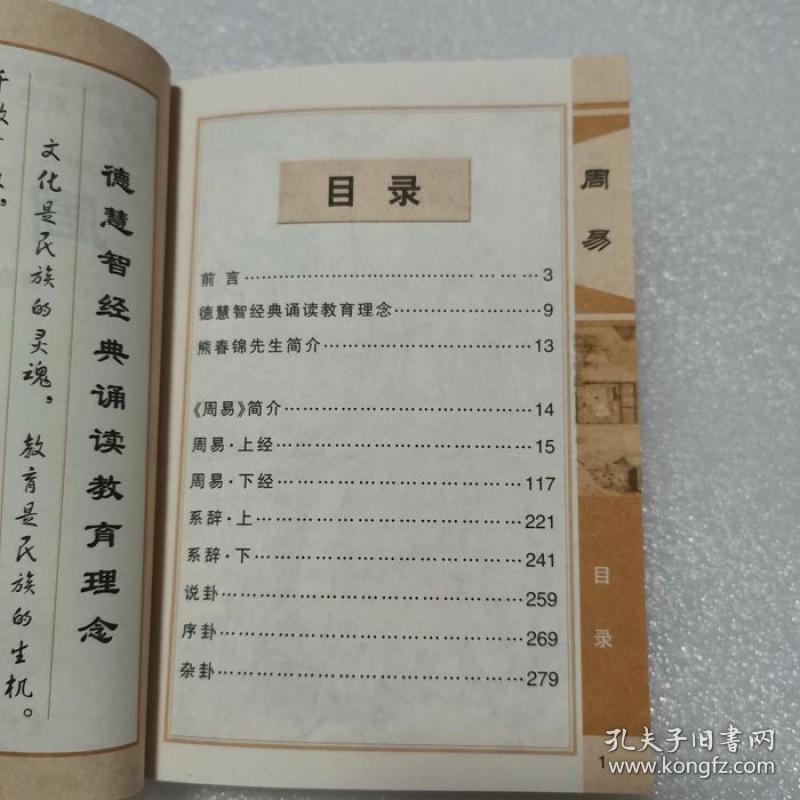 德慧智经典诵读教育理念
文化是民族的灵魂，教育是民族的生机。
目录
前言………………………………3
德慧智经典诵读教育理念……………………9
熊春锦先生简介……………………………13
《周易》简介………………………………14
周易·上经…………………………………15
周易·下经…………………………………117
系辞·上……………………………………221
系辞·下……………………………………241
说卦…………………………………………259
序卦…………………………………………269
杂卦…………………………………………279
周易
目录
1
孔夫子旧书网
www.kongfz.com